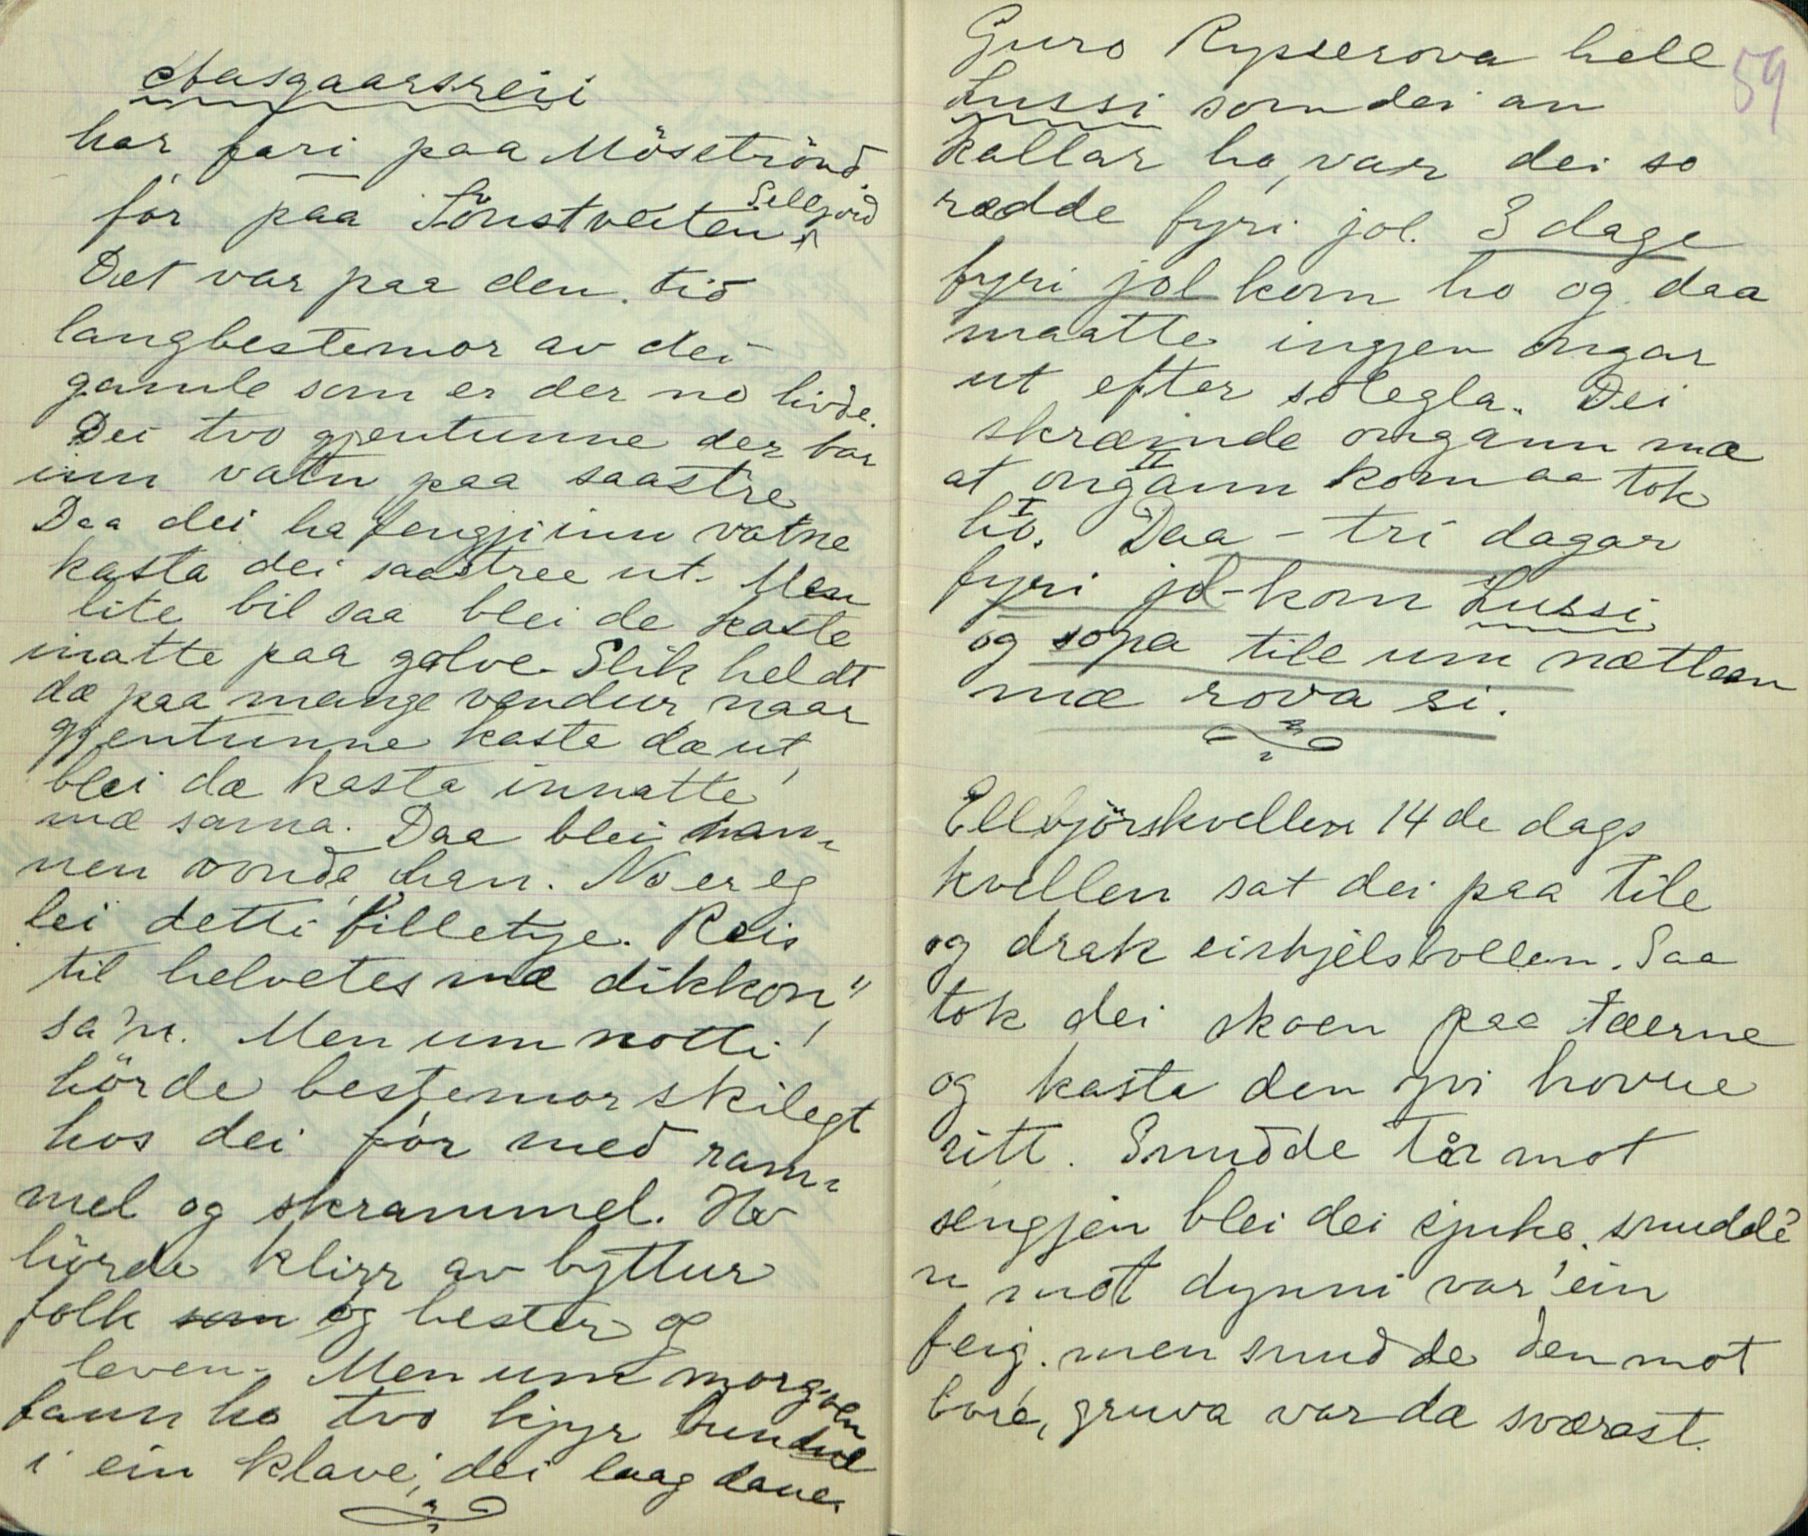 Aasgaarsreii
har fari paa Mösströnd.
fór paa Tönstveiten Sellgjord
Det var paa den tid
langbestemor av dei
gamle som er der no livde.
Dei tvo gjentunne der bar
inn vatn paa saastre
Daa dei ha fengji inn vatne
kasta dei saastree ut. Men
lite bil saa blei de kasta
inatte paa golve. Slik heldt
dæ paa mange vendur, naar
gjentunne kasta dæ ut,
blei dæ kasta innatte
mæ sama. Daa blei man-
nen vonde, han. No er eg
lei detti filletye. Reis
til helvetes mæ dikkon"
sa'n. Men um notti
hörde bestemor skilegt
hos dei fór med ram-
mel og skrammel. Ho
hörde klirr av byttur
folk som og hester og
leven. Men um morgoen
fann ho tvo kjyr bundne
i ein klave, dei laag daue.
59
Guro Rysserova hell
Lussi som dei au
kallar ho, var dei so
rædde fyri jol. 3 dage
fyri jol kom ho og daa
maatte ingjen ongar
ut efter solegla. Dei
skræmde ongann mæ
at ongann kom aa tok
ho. Daa - tri dagar
fyri jol - kom Lussi
og sopa tile um nættean
mæ rova si.
Ellbjörskvellen 14 de dags
kvellen sat dei paa tile
og drak eirkjelsbollen. Saa
tok dei skoen paa tæerne
og kasta den yvi hovue
sitt. Snudde tår mot
sengjen blei dei sjuke, snudde
n mot dynni var ein
feig. men snudde den mot
bore, gruva var dæ sværast.